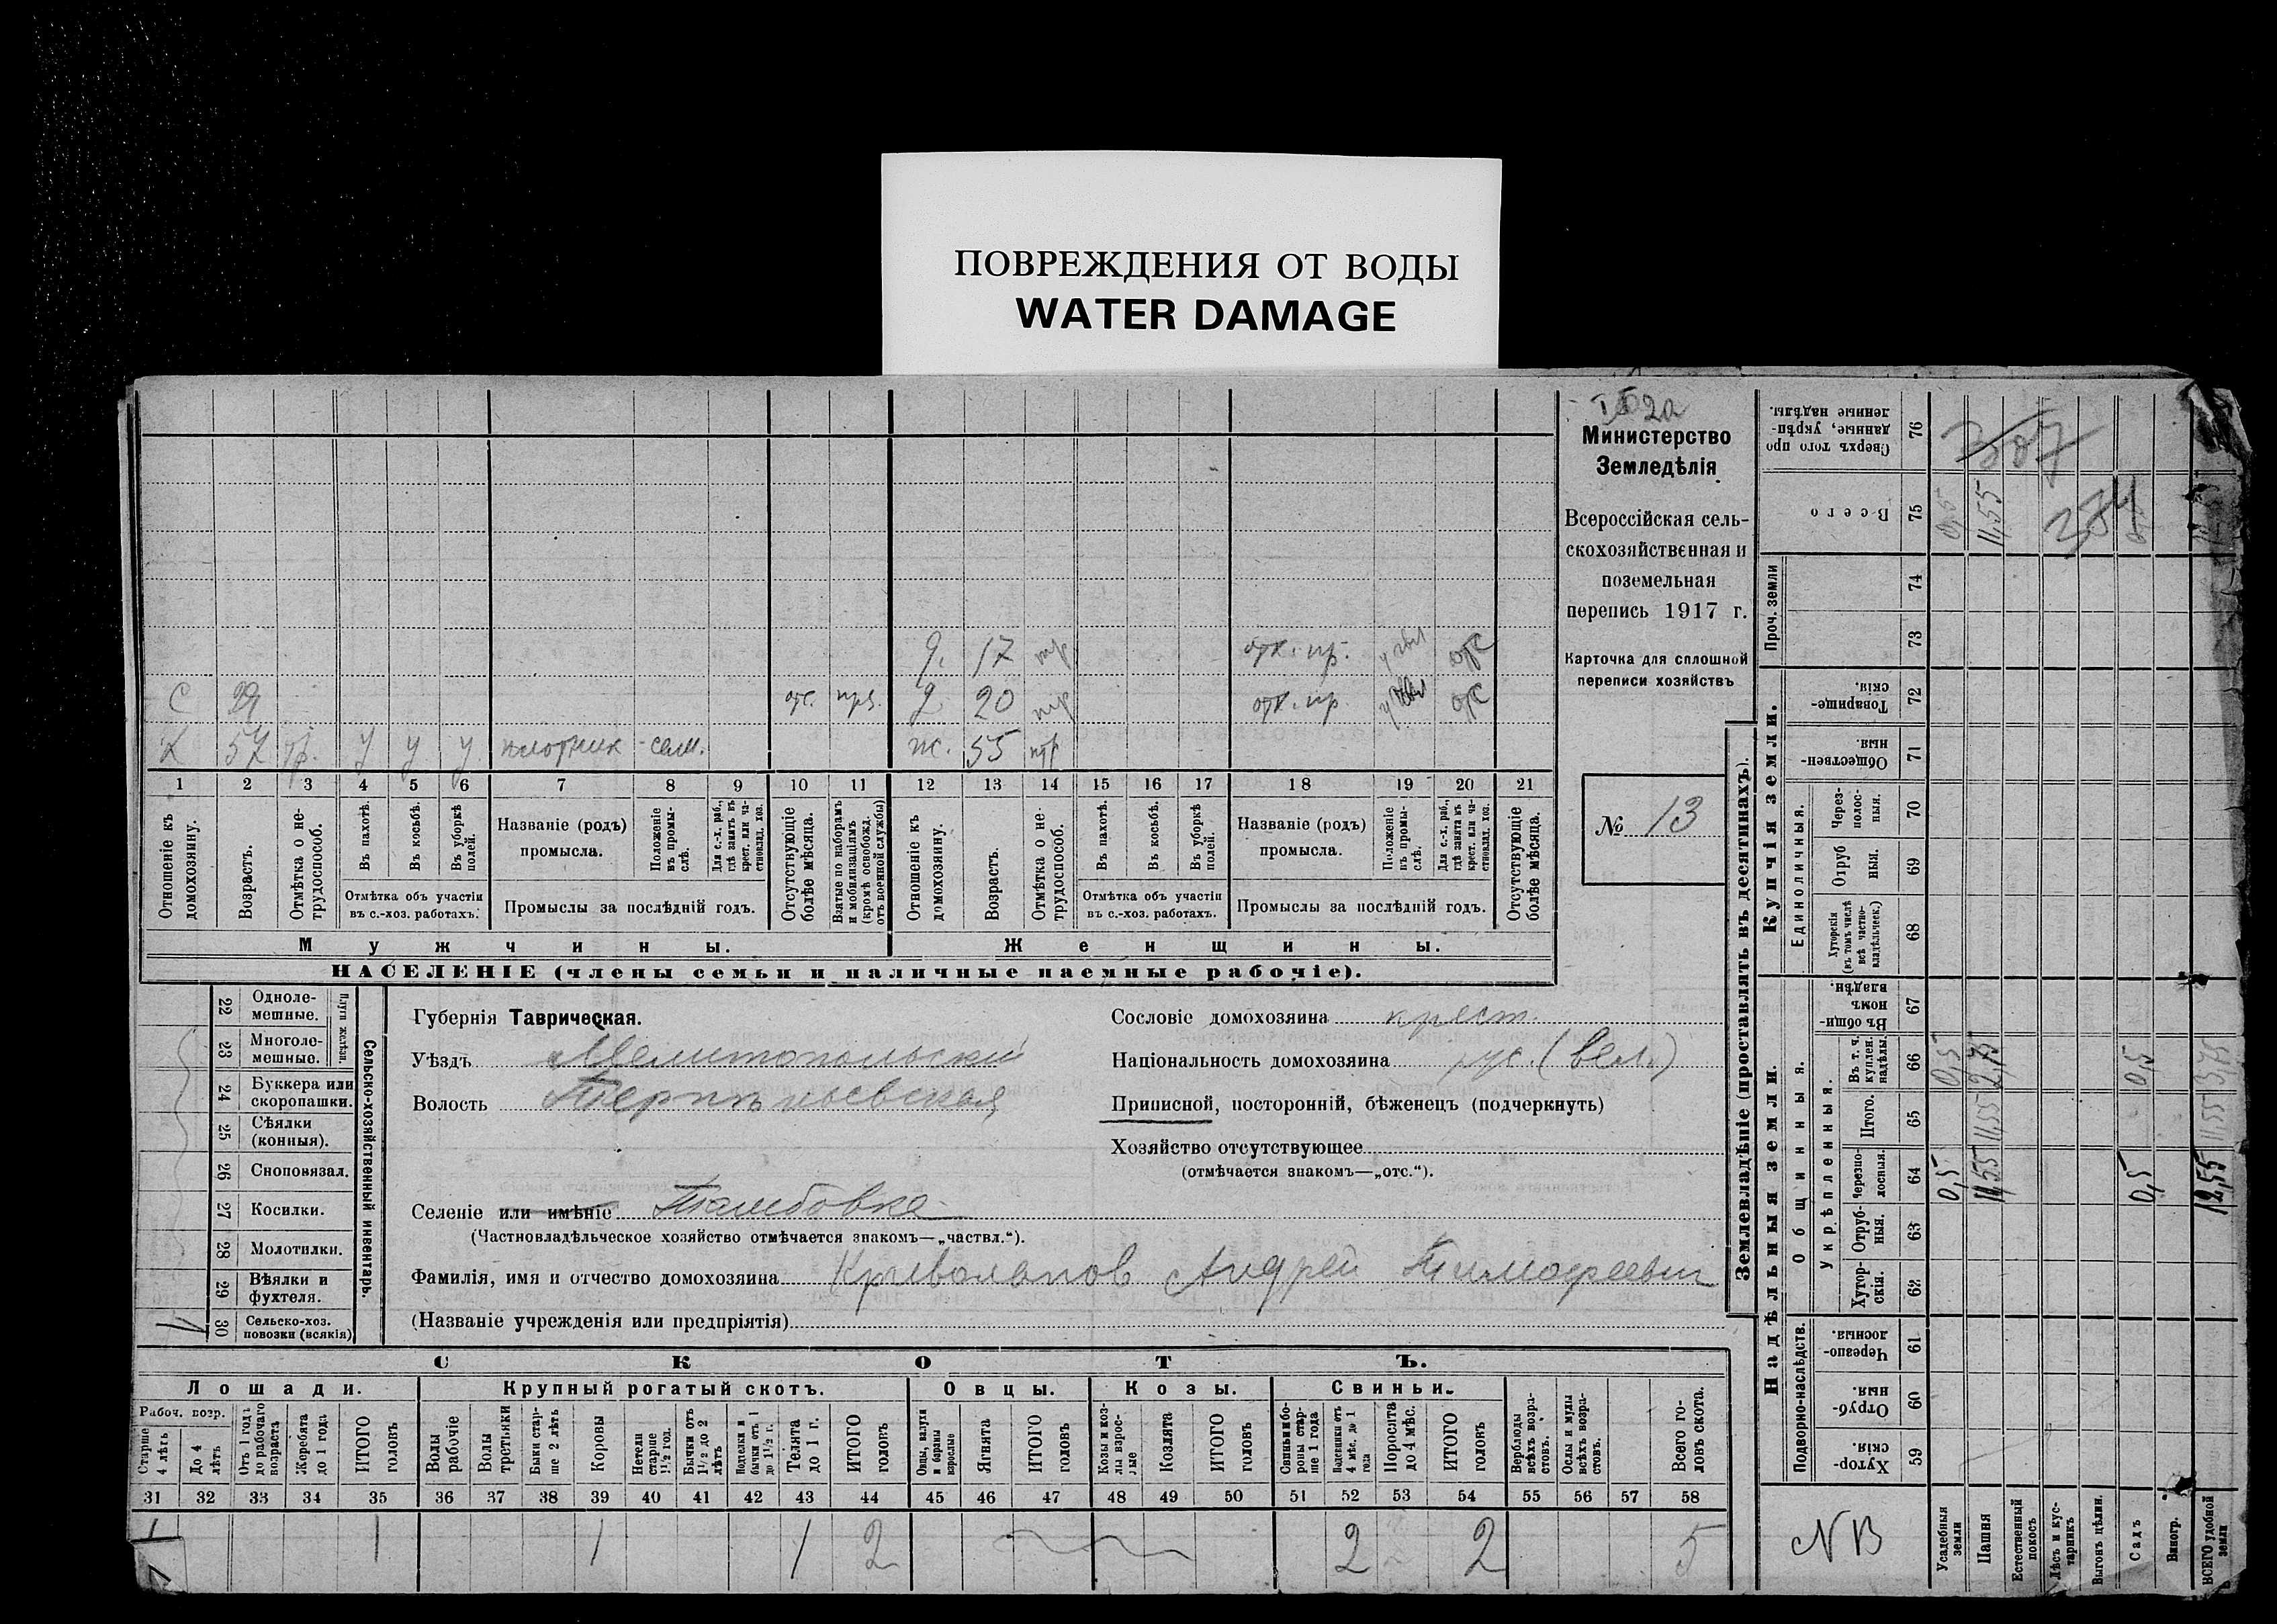 ПОВРЕЖДЕНИЯ ОТ ВОДЫ
WATER DAMAGE
2а
Министерство
Земледѣлія
Всероссійская сель-
скохозяйственная и
поземельная
перепись 1917 г.
Карточка для сплошной
переписи хозяйствъ
№ 13
д. 17 отх. пр. отс
с отс. д 20 отх. пр. отс
х 57 у у у плотник сел. ж. 55
1 2 3 4 5 6 7 8 9 10 11 12 13 14 15 16 17 18 19 20 21
Отношеніе къ домохозяину.
Возрастъ.
Отмѣтка о не-трудоспособ.
Въ пахотѣ.
Въ косьбѣ.
Въ уборкѣ полей.
Отмѣтка объ участіи
въ с.-хоз. работахъ.
Названіе (родъ)
промысла.
Положеніе въ промы-слѣ.
Для с.-х. раб., гдѣ занятъ въ крест. или ча-стновлад. хоз.
Промыслы за послѣдній годъ.
Отсутствующіе болѣе мѣсяца.
Взятые по наборамъ и мобилизаціямъ (кромѣ освобожд. отъ военной службы)
Отношеніе къ домохозяину.
Возрастъ.
Отмѣтка о не-трудоспособ.
Въ пахотѣ.
Въ косьбѣ.
Въ уборкѣ полей.
Отмѣтка объ участіи
въ с.-хоз. работахъ.
Названіе (родъ)
промысла.
Положеніе въ промы-слѣ.
Для с.-х. раб., гдѣ занята въ крест. или ча-стновлад. хоз.
Промыслы за послѣдній годъ.
Отсутствующіе болѣе мѣсяца.
Мужчины. Женщины.
НАСЕЛЕНІЕ (члены семьи и наличные наемные рабочіе).
Сельско-хозяйственный инвентарь.
Плуги желѣзн.
22 Одноле-мешные.
23 Многоле-мешные.
24 Буккера или скоропашки.
25 Сѣялки (конныя).
26 Сноповязал.
27 Косилки.
28 Молотилки.
29 Вѣялки и фухтеля.
30 Сельско-хоз. повозки (всякія) 1
Губернія Таврическая.
Уѣздъ Мелитопольскій
Волость Терпѣньевская
Сословіе домохозяина крест.
Національность домохозяина рус. (вел.)
Приписной, посторонній, бѣженецъ (подчеркнуть)
Хозяйство отсутствующее
(отмѣчается знакомъ—„отс.“).
Селеніе или имѣніе Тамбовка
(Частновладѣльческое хозяйство отмѣчается знакомъ—„частвл.“).
Фамилія, имя и отчество домохозяина Криволапов Андрей Тимофеевич
(Названіе учрежденія или предпріятія)
СКОТЪ.
Лошади. Крупный рогатый скотъ. Овцы. Козы. Свиньи.
Рабоч. возр.
Старше 4 лѣтъ
До 4 лѣтъ
Отъ 1 года до рабочаго возраста
Жеребята до 1 года
ИТОГО головъ
Волы рабочіе
Волы третьяки
Быки стар-ше 2 лѣтъ
Коровы
Нетели старше 1½ год.
Бычки отъ 1½ до 2 лѣтъ
Подтелки и бычки отъ 1 до 1½ г.
Телята до 1 г.
ИТОГО головъ
Овцы, валухи и бараны взрослые
Ягнята
ИТОГО головъ
Козы и коз-лы взрос-лые
Козлята
ИТОГО головъ
Свиньи и бо-ровы стар-ше 1 года
Подсвинки отъ 4 мѣс. до 1 года
Поросята до 4 мѣс.
ИТОГО головъ
Верблюды всѣхъ возра-стовъ.
Ослы и мулы всѣхъ возра-стовъ.
Всего го-ловъ скота.
31 32 33 34 35 36 37 38 39 40 41 42 43 44 45 46 47 48 49 50 51 52 53 54 55 56 57 58
1 1 1 1 2 2 2 5
Землевладѣніе (проставлять въ десятинахъ).
Надѣльныя земли. Купчія земли. Проч. земли
Подворно-наслѣдств.
Общинныя.
Укрѣпленныя.
Единоличныя.
59 Хутор-скія.
60 Отруб-ныя.
61 Черезпо-лосныя.
62 Хутор-скія.
63 Отруб-ныя.
64 Черезпо-лосныя.
65 Итого.
66 Въ т. ч. куплен. надѣлы.
67 Въ общин-номъ владѣн.
68 Хуторскія (въ томъ числѣ всѣ частно-владѣльческ.)
69 Отруб ныя.
70 Через-полос-ныя.
71 Обществен-ныя.
72 Товарище-скія.
73
74
75 Всего
76 Сверхъ того про данные, укрѣп-ленные надѣлы.
NB
Усадебныя земли 0,5 0,5 0,5
Пашня 11,55 11,55 2,75 11,55
Естественный покосъ
Лѣсъ и кус-тарникъ
Выгонъ цѣлин.
Садъ 0,5 0,5
Виногр.
ВСЕГО удобной земли 12,55 11,55 3,75
307
374